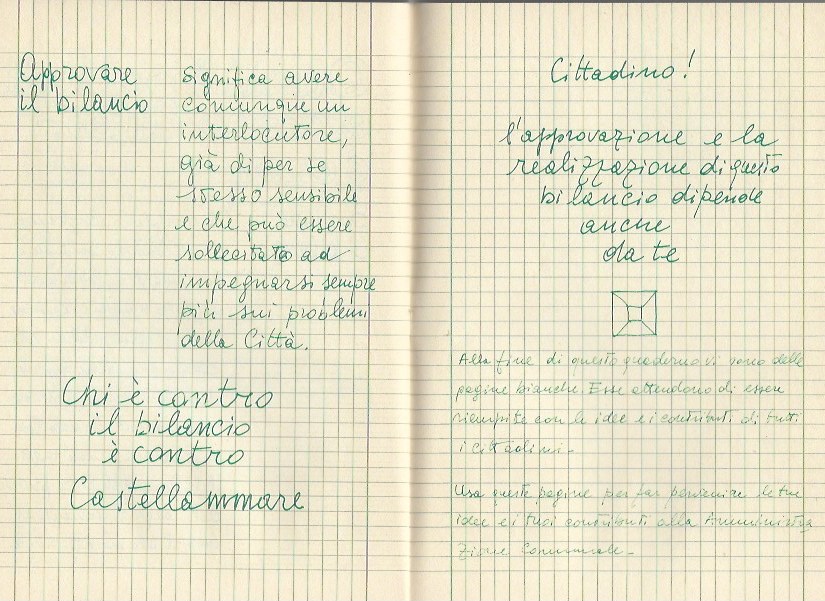 Approvare
il bilancio
Significa avere
comunque un
interlocutore,
già di per se
stesso sensibile
e che può essere
sollecitato ad
impegnarsi sempre
più sui problemi
della Città.
Chi è contro
il bilancio
è contro
Castellammare
Cittadino!
l'approvazione e la
realizzazione di questo
bilancio dipende
anche
da te
Alla fine di questo quaderno vi sono delle
pagine bianche. Esse attendono di essere
riempite con le idee e i contributi di tutti
i cittadini-
Usa queste pagine per far pervenire le tue
idee e i tuoi contributi alla Amministra
zione Comunale-